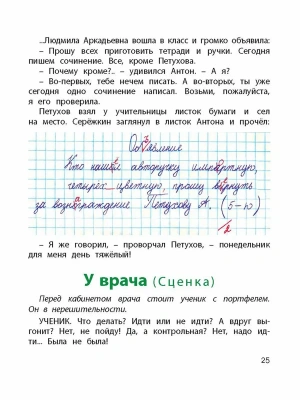 ...Людмила Аркадьевна вошла в класс и громко объявила:
– Прошу всех приготовить тетради и ручки. Сегодня
пишем сочинение. Все, кроме Петухова.
– Почему кроме?.. – удивился Антон. – А я?
– Во-первых, тебе нечем писать. А во-вторых, ты уже
сегодня одно сочинение написал. Возьми, пожалуйста,
я его проверила.
Петухов взял у учительницы листок бумаги и сел
на место. Серёжкин заглянул в листок Антона и прочёл:
Объявление
Кто нашёл авторучку импортную,
четырех цветную, прошу вернуть
за вознаграждение Петухову А. (5-ю)
2
– Я же говорил, – проворчал Петухов, – понедельник
для меня день тяжёлый!
У врача (Сценка)
Перед кабинетом врача стоит ученик с портфелем.
Он в нерешительности.
УЧЕНИК. Что делать? Идти или не идти? А вдруг вы-
гонит? Нет, не пойду! Да, а контрольная? Нет, надо ид-
ти... Была не была!
25